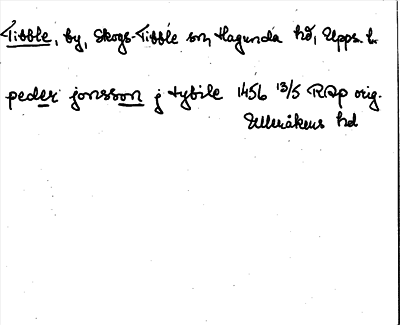 Tibble, by, Skogs-Tibble sn, Hagunda hd, Upps. l.
peder jonsson j tybile 1456 13/5 RAp orig.
Ulleråkers hd